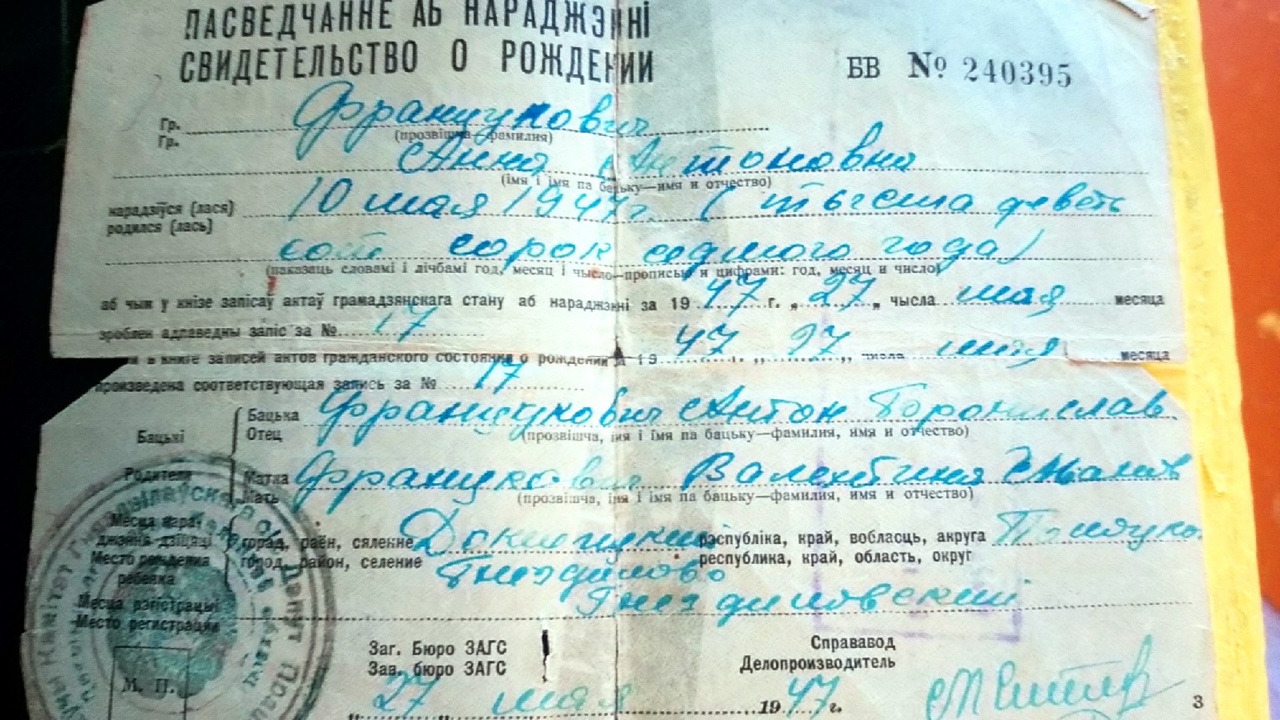 ПАСВЕДЧАННЕ АБ НАРАДЖЭННІ
СВИДЕТЕЛЬСТВО О РОЖДЕНИИ
БВ № 240395
Гр. Францукович
Гр.
(прозвішча—фамилия)
Анна Антоновна
(імя і імя па бацьку—имя и отчество)
нарадзіўся (лася) 10 мая 1947 г. (тысяча девять
родился (лась)
сот сорок седмого года)
(паказаць словамі і лічбамі год, месяц і чысло—прописью и цифрами: год, месяц и число)
аб чым у кнізе запісаў актаў грамадзянскага стану аб нараджэнні за 1947 г. „27„ чысла мая месяца
зроблен адпаведны запіс за № 17
в книге записей актов гражданского состояния о рождении за 1947 г. „27„ числа мая месяца
произведена соответствующая запись за № 17
Бацькі
Родители
Бацька Францукович Антон Боронислав
Отец
(прозвішча, імя і імя па бацьку—фамилия, имя и отчество)
Матка Францукович Валентина
Мать
(прозвішча, імя і імя па бацьку—фамилия, имя и отчество)
Месца нараджэння дзіцяці
Место рождения ребенка
горад, раён, сяленне Докшицкий рэспубліка, край, вобласць, акруга Полоцко
город, район, селение Гнездилово республика, край, область, округ
Месца рэгістрацыі Гнездиловский
Место регистрации
Заг. Бюро ЗАГС
Зав. бюро ЗАГС
Справавод
Делопроизводитель
М. П.
„27 мая 1947 г.
3